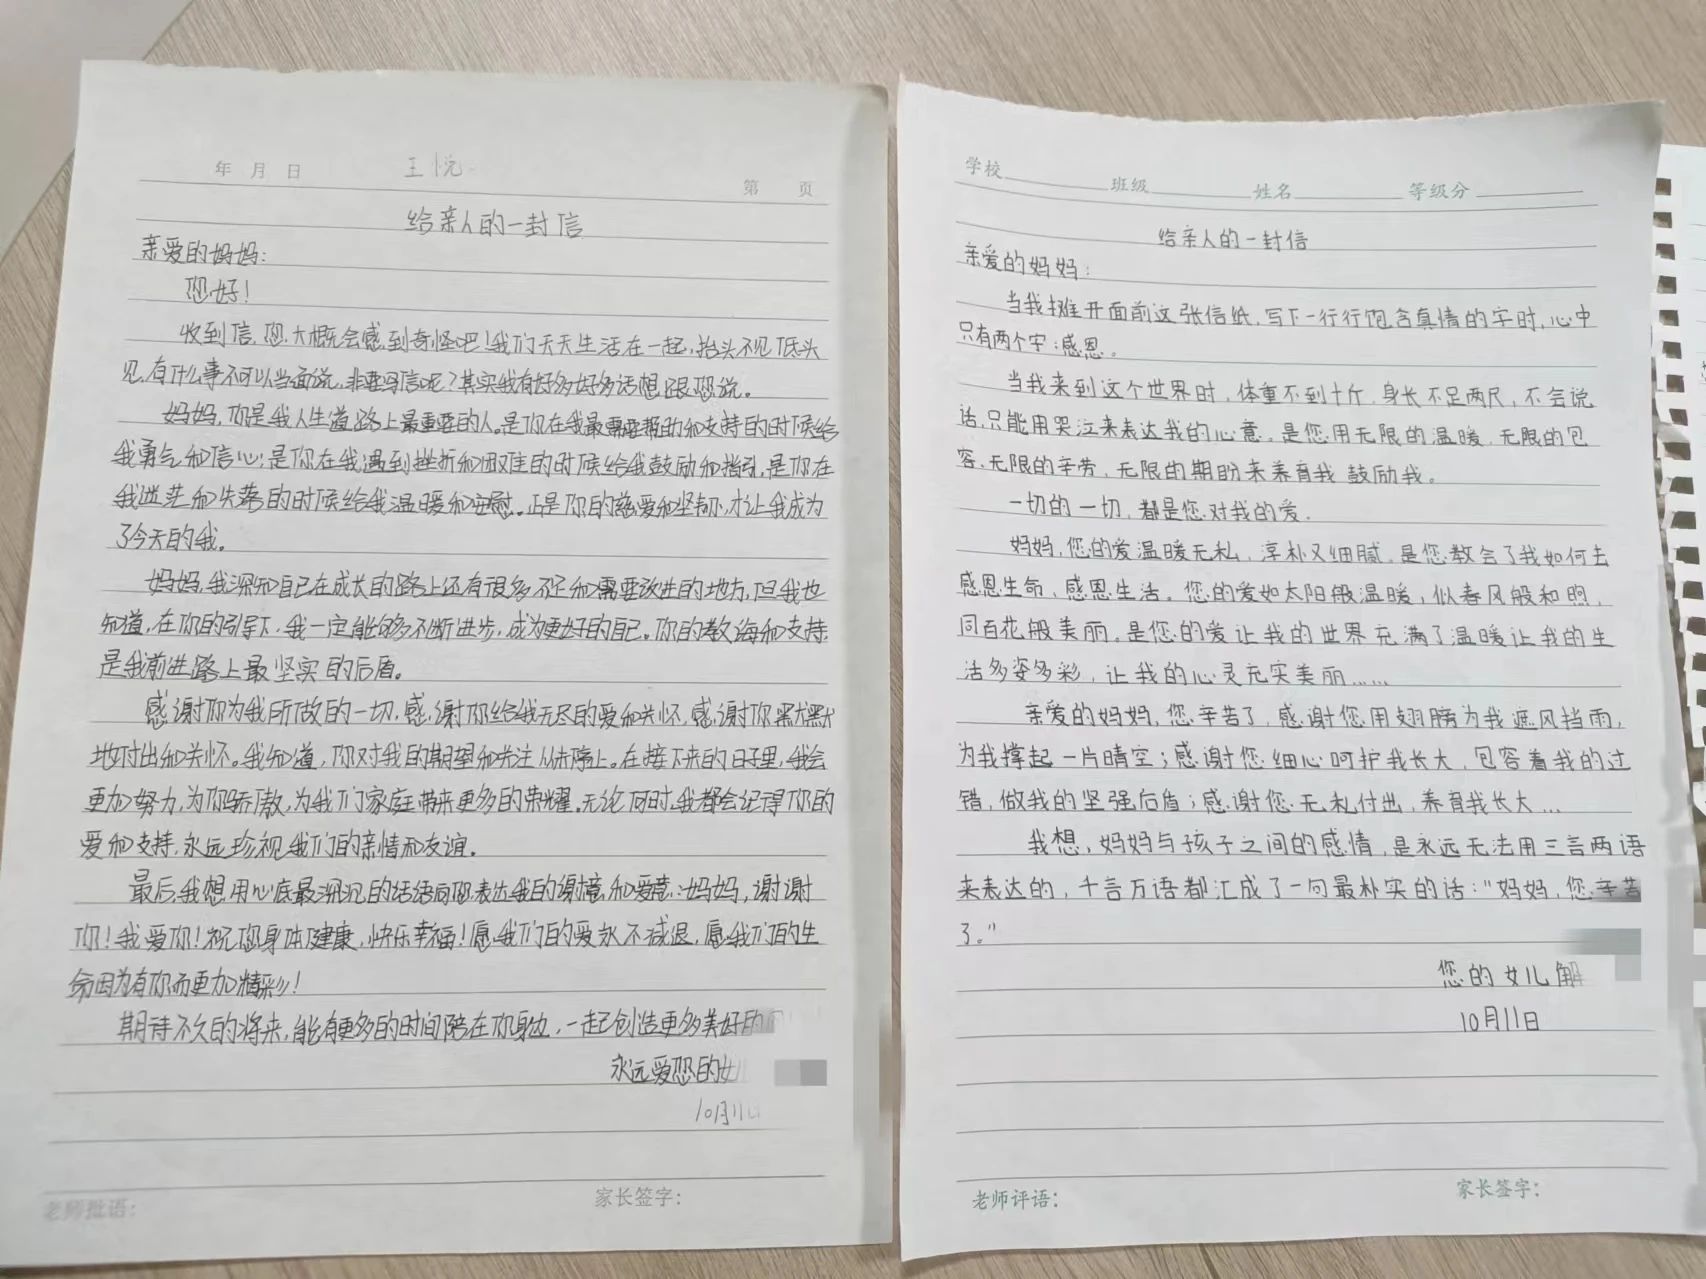 年 月 日
王悦
第 页
给亲人的一封信
亲爱的妈妈:
您好!
收到信,您大概会感到奇怪吧!我们天天生活在一起,抬头不见低头
见,有什么事不可以当面说,非要写信呢?其实我有好多好多话想跟您说。
妈妈,你是我人生道路上最重要的人。是你在我最需要帮助和支持的时候给
我勇气和信心;是你在我遇到挫折和困难的时候给我鼓励和指引,是你在
我迷茫和失落的时候给我温暖和安慰。正是你的慈爱和坚韧,才让我成为
了今天的我。
妈妈,我深知自己在成长的路上还有很多不足和需要改进的地方,但我也
知道,在你的引导下,我一定能够不断进步,成为更好的自己。你的教诲和支持,
是我前进路上最坚实的后盾。
感谢你为我所做的一切,感谢你给我无尽的爱和关怀,感谢你默默
地付出和关怀。我知道,你对我的期望和关注从未停止。在接下来的日子里,我会
更加努力,为你骄傲,为我们家庭带来更多的荣耀。无论何时,我都会记得你的
爱和支持,永远珍视我们的亲情和友谊。
最后,我想用心底最深沉的话语向您表达我的谢意和爱意:妈妈,谢谢
你!我爱你!祝您身体健康,快乐幸福!愿我们的爱永不减退,愿我们的生
命因为有你而更加精彩!
期待不久的将来,能有更多的时间陪在你身边,一起创造更多美好的
永远爱您的女
10月11日
老师批语:
家长签字:
学校 班级 姓名 等级分
给亲人的一封信
亲爱的妈妈:
当我摊开面前这张信纸,写下一行行饱含真情的字时,心中
只有两个字:感恩。
当我来到这个世界时,体重不到十斤,身长不足两尺,不会说
话,只能用哭泣来表达我的心意。是您用无限的温暖,无限的包
容,无限的辛劳,无限的期盼来养育我 鼓励我。
一切的一切,都是您对我的爱.
妈妈,您的爱温暖无私,淳朴又细腻,是您教会了我如何去
感恩生命,感恩生活。您的爱如太阳般温暖,似春风般和煦,
同百花般美丽,是您的爱让我的世界充满了温暖让我的生
活多姿多彩,让我的心灵充实美丽……
亲爱的妈妈,您辛苦了,感谢您用翅膀为我遮风挡雨,
为我撑起一片晴空;感谢您细心呵护我长大,包容着我的过
错,做我的坚强后盾;感谢您无私付出,养育我长大…
我想,妈妈与孩子之间的感情,是永远无法用三言两语
来表达的,千言万语都汇成了一句最朴实的话:“妈妈,您辛苦
了。”
您的女儿解
10月11日
老师评语:
家长签字: